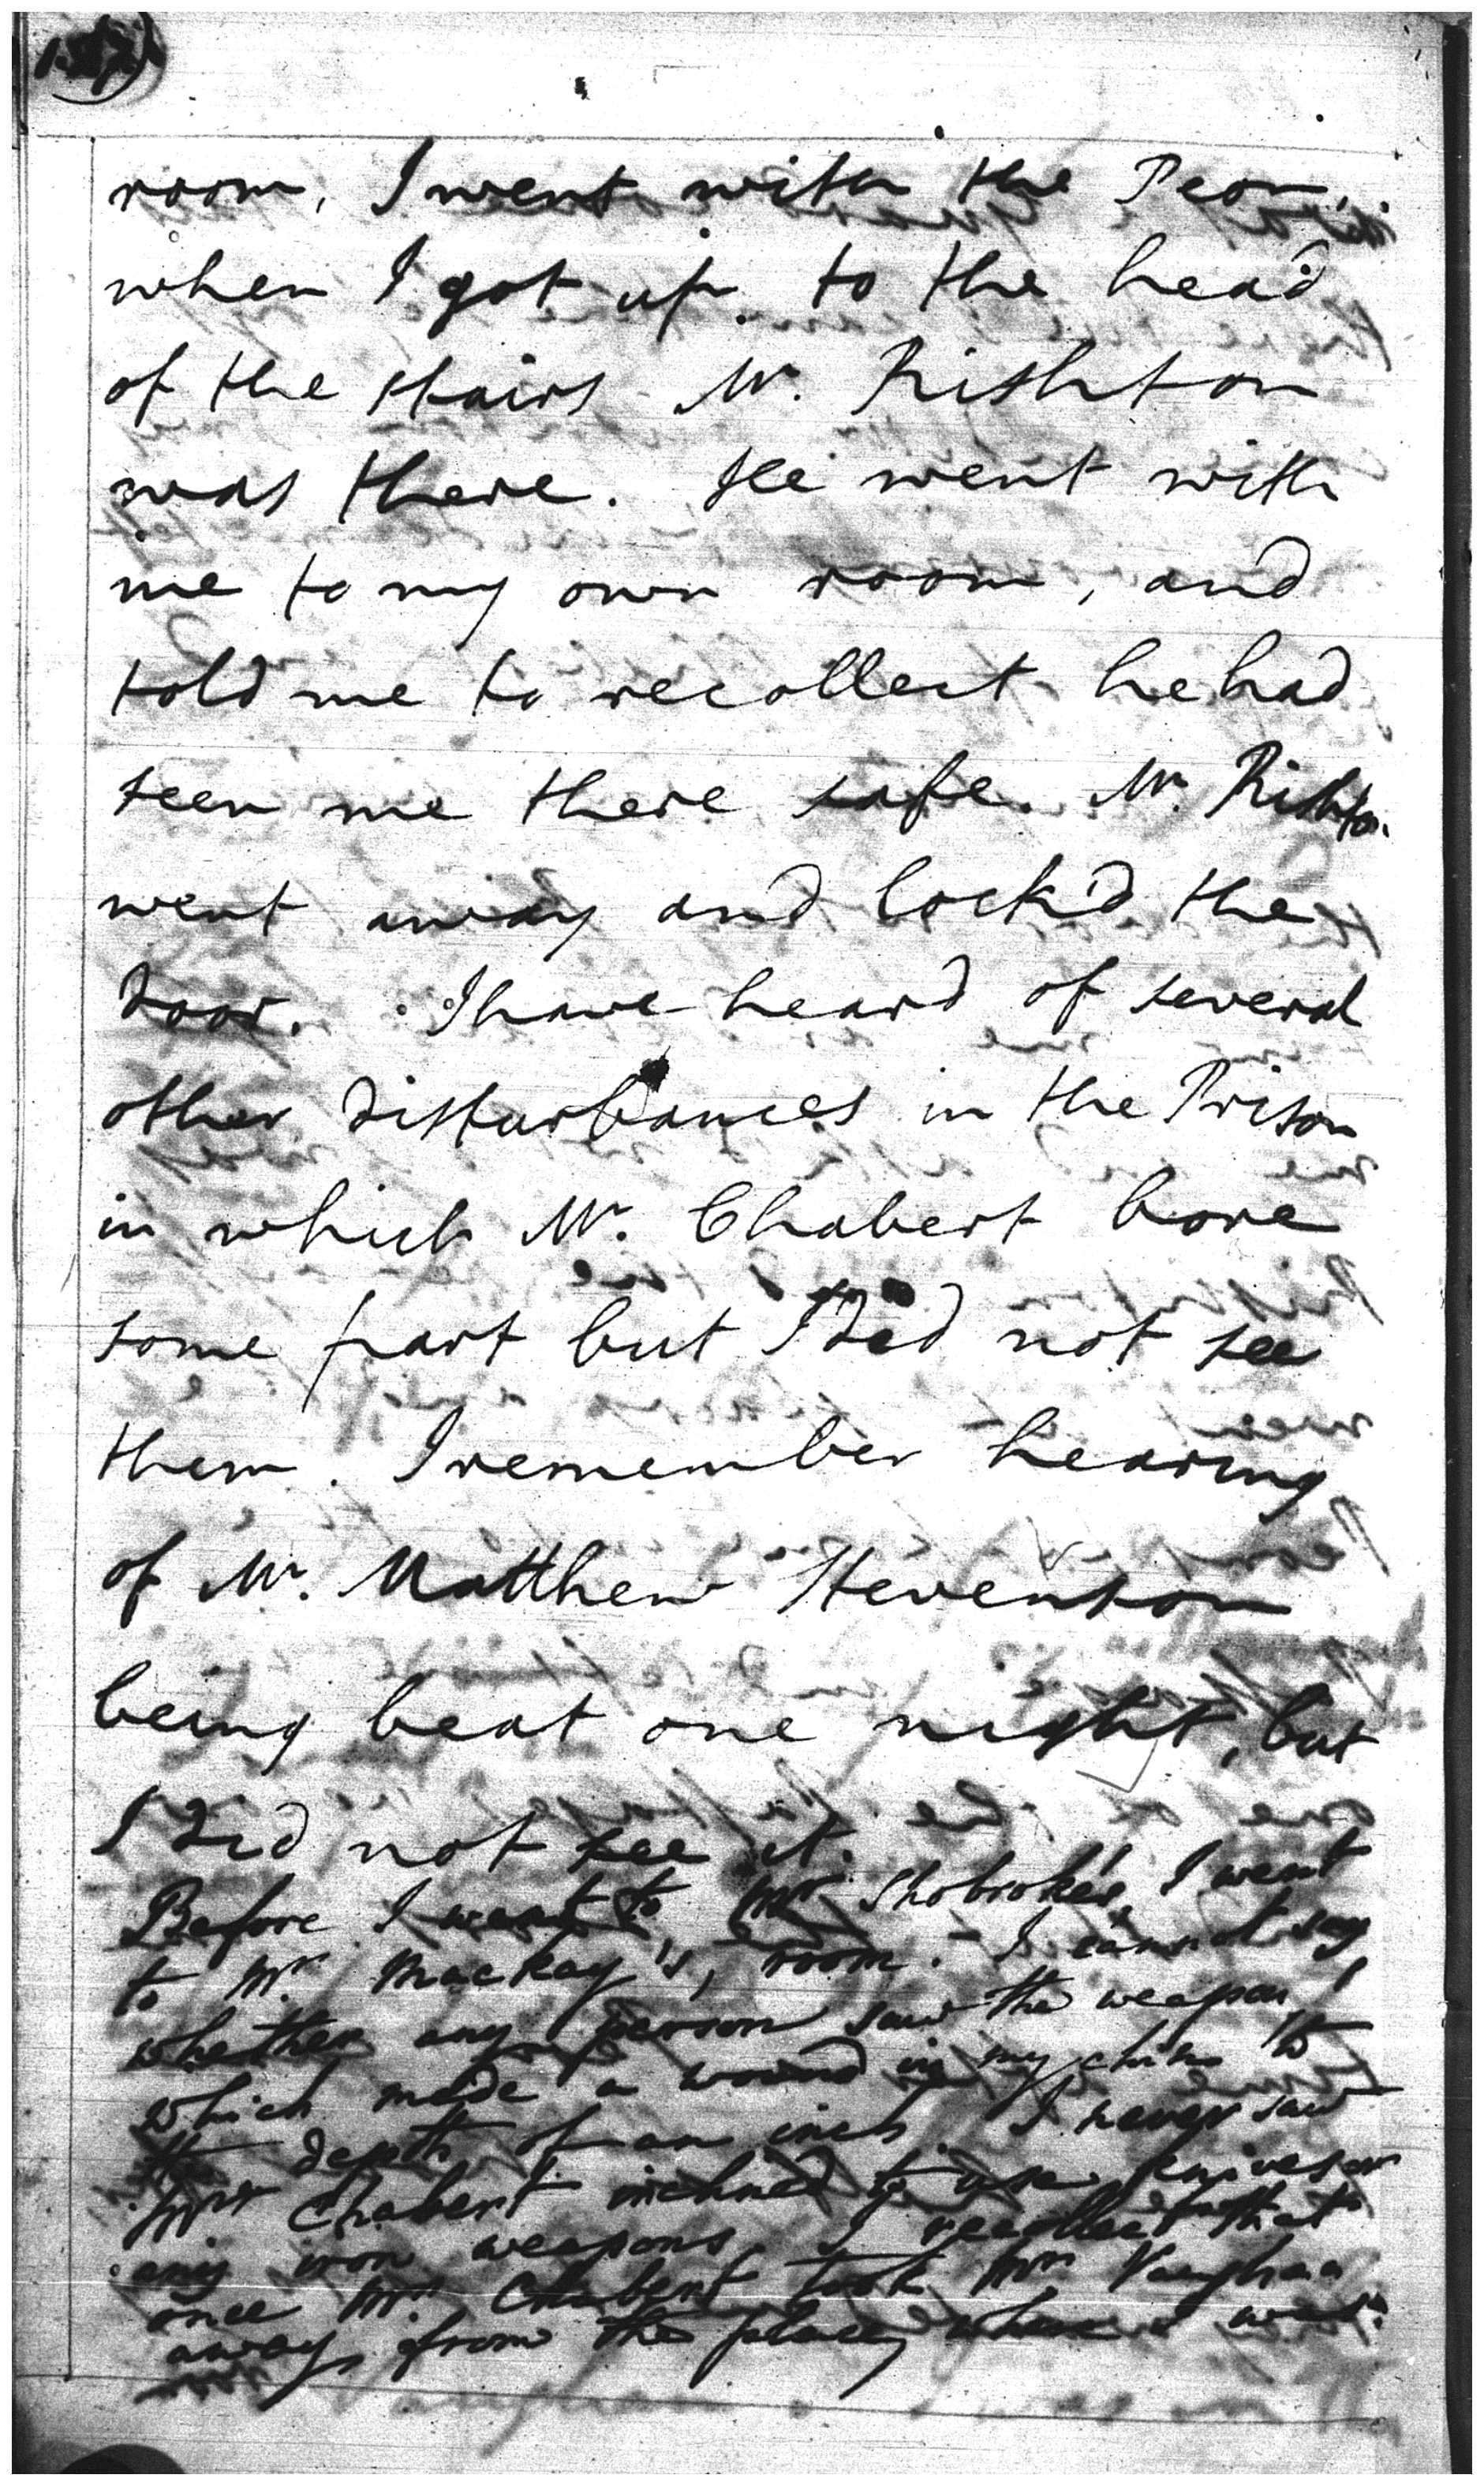 room, I went with the Peon,
when I got up to the head
of the stairs Mr. Rishton
was there. He went with
me to my own room, and
told me to recollect he had
seen me there safe. Mr. Rishton
went away and lock'd the
door. I have heard of several
other disturbances in the Prison
in which Mr. Chabert bore
some part but I did not see
them. I remember hearing
of Mr. Matthew Stevenson
being beat one night, but
I did not see it.
Before I went to Mr Shobroke's, I went
to Mr Mackay's, room. I cannot say
whether any person saw the weapon
which made a wound in my chin to
the depth of an inch. I never saw
Mr Chabert inclined to use knives or
any iron weapons, I recollect that
once Mr Chabert took Mr Vaughan
away from the place where I was.